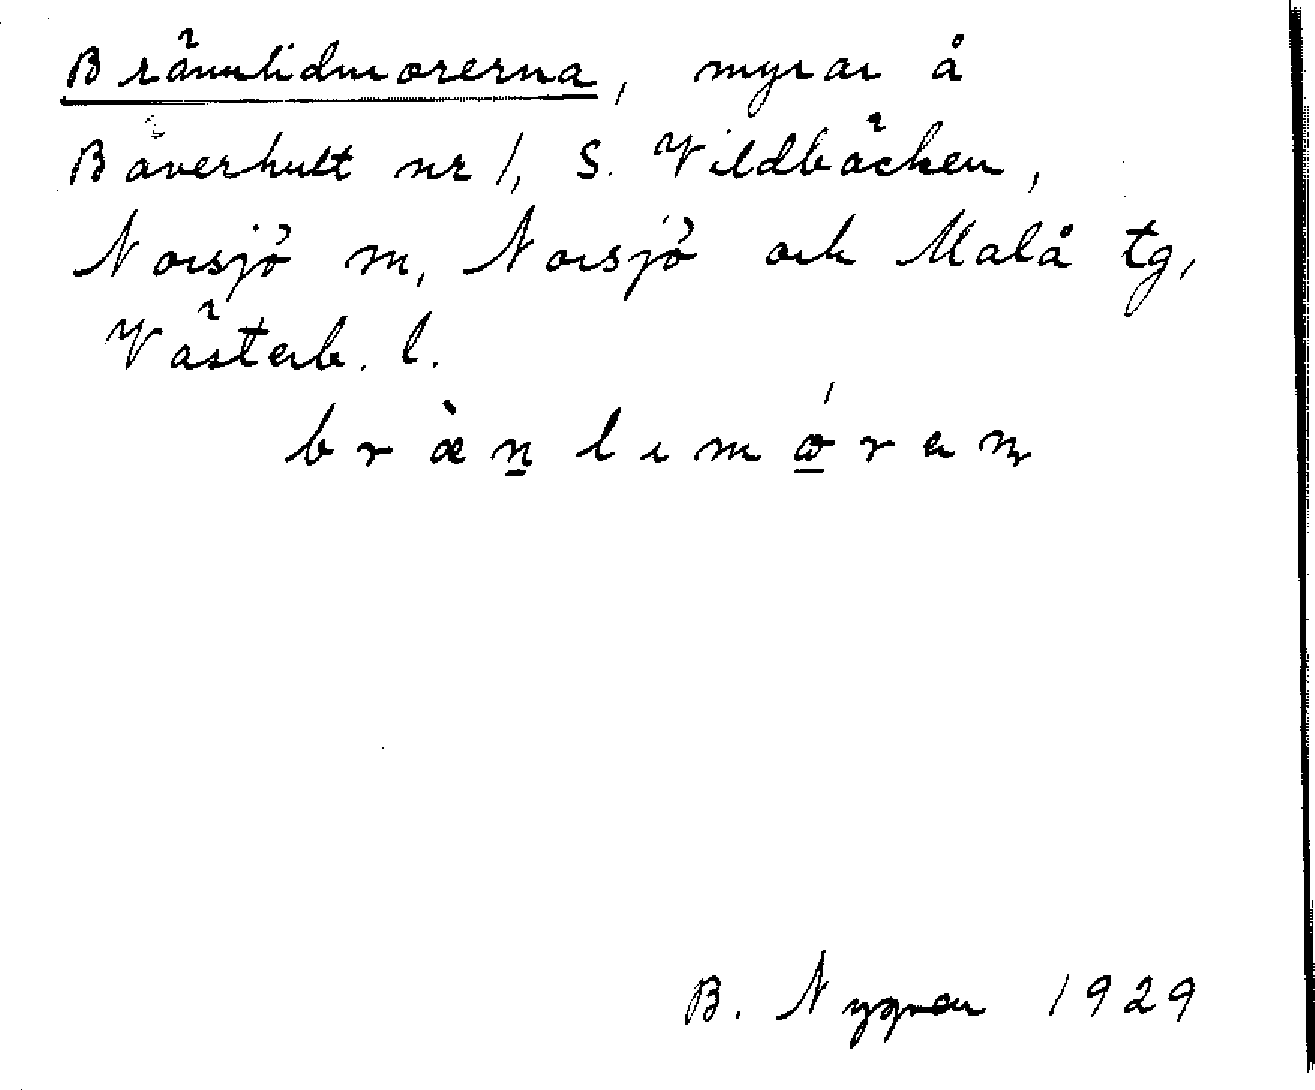 Brännlidmorerna, myrar å
Bäverhult nr 1, S. Vildbäcken,
Norsjö m, Norsjö och Malå tg,
Västerb. l.
bræ̀n̲limó̲ren
B. Nygren 1929